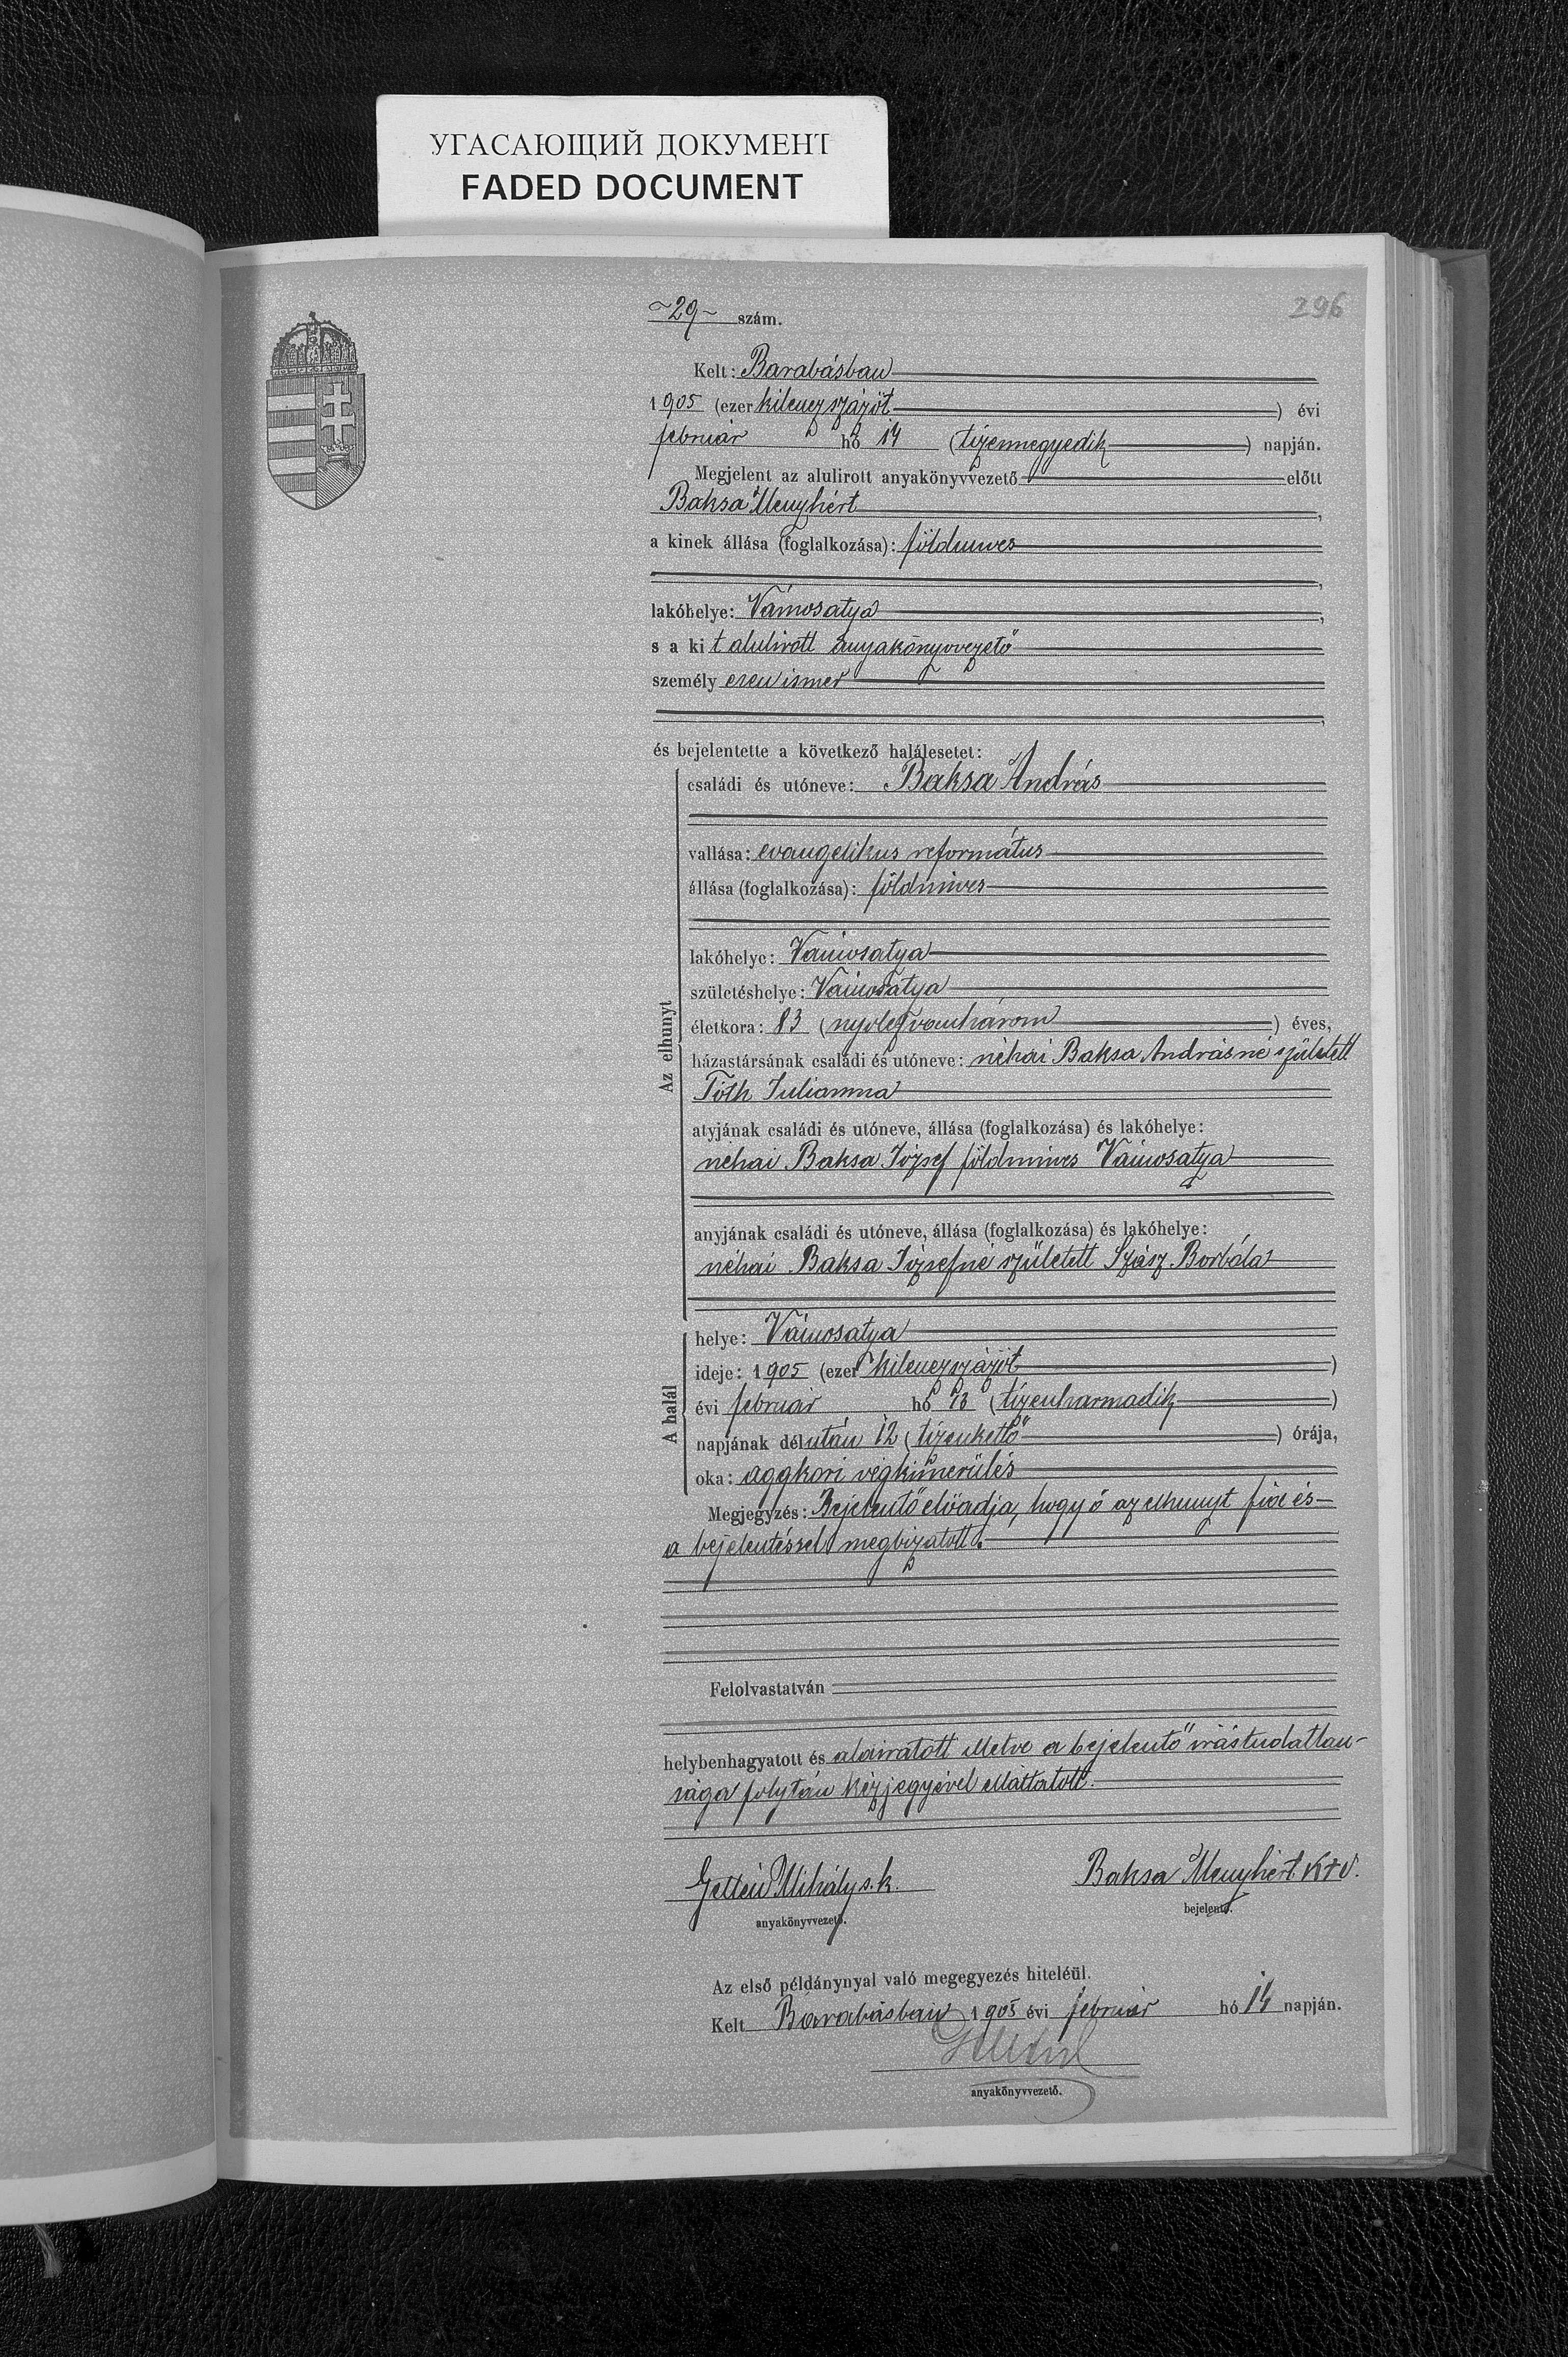 УГАСАЮЩИЙ ДОКУМЕНТ
FADED DOCUMENT
296
~29~ szám.
Kelt: Barabásban
1905 (ezer kilenczszázöt) évi
február hó 14 (tizennegyedik) napján.
Megjelent az alulirott anyakönyvvezető előtt
Baksa Menyhért,
a kinek állása (foglalkozása): földmives
,
lakóhelye: Vámosatya,
s a kit alulirott anyakönyvvezető
személyesen ismer
,
és bejelentette a következő halálesetet:
Az elhunyt
családi és utóneve: Baksa András
vallása: evangelikus református
állása (foglalkozása): földmives
lakóhelye: Vámosatya
születéshelye: Vámosatya
életkora: 83 (nyolczvanhárom) éves,
házastársának családi és utóneve: néhai Baksa Andrásné született
Tóth Julianna
atyjának családi és utóneve, állása (foglalkozása) és lakóhelye:
néhai Baksa József földmives Vámosatya
anyjának családi és utóneve, állása (foglalkozása) és lakóhelye:
néhai Baksa Józsefné született Szász Borbála
A halál
helye: Vámosatya
ideje: 1905 (ezer kilenczszázöt)
évi február hó 13 (tizenharmadik)
napjának délután 12 (tizenkettő) órája,
oka: aggkori végkimerülés
Megjegyzés: Bejelentő előadja, hogy ő az elhunyt fia és
a bejelentéssel megbizatott.
Felolvastatván
helybenhagyatott és aláiratott illetve a bejelentő irástudatlan-
sága folytán kézjegyével elláttatott.
Mihály s.k.
anyakönyvvezető.
Baksa Menyhért K+V.
bejelentő.
Az első példánynyal való megegyezés hiteléül.
Kelt Barabásban 1905 évi február hó 14 napján.
anyakönyvvezető.